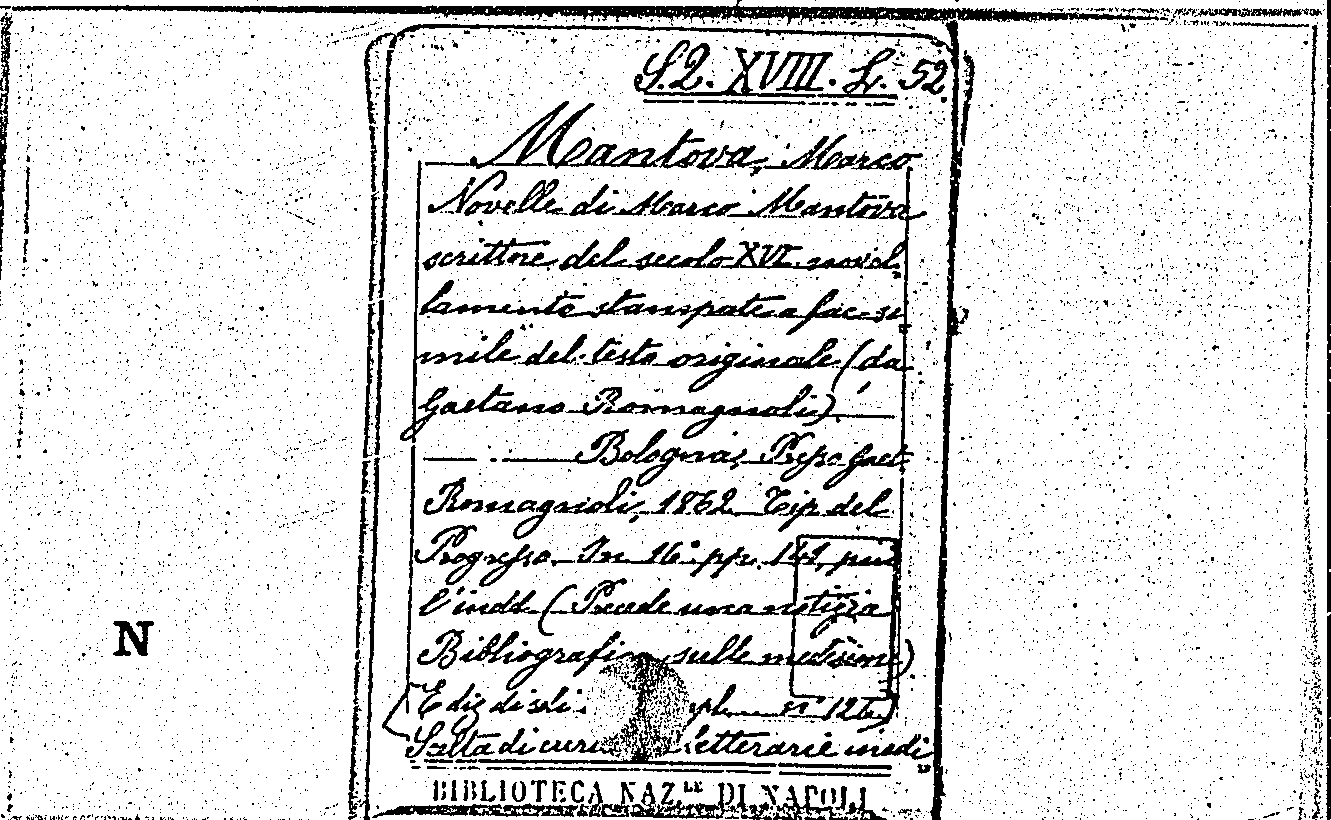 S.Q. XVIII. L. 52.
Mantova, Marco
Novelle di Marco Mantova
scrittore del secolo XVI novel
lamente stampate a fac-si
mile del testo originale (da
Gaetano Romagnoli).
Bologna, Gaet.
Romagnoli, 1862 Tip del
Progresso. In 16.° pp. 141, più
l'ind. (Precede una notizia
Bibliografica sulle medesime)
(Ediz di soli
Scelta di letterarie inedi
BIBLIOTECA NAZ.LE DI NAPOLI
N